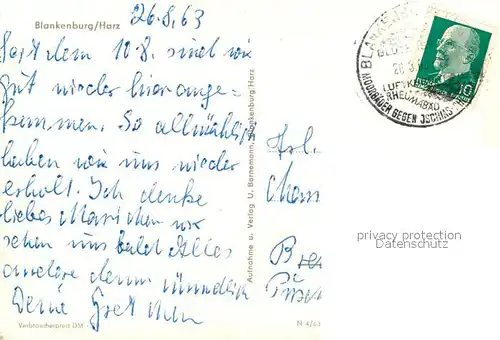 Blankenburg/Harz
26.8.63
Seit dem 10.8. sind wir
gut wieder hier ange-
kommen. So allmählich
haben wir uns wieder
erholt. Ich denke
liebes Mariechen wir
sehen uns bald Alles
andere dann mündlich
Deine Gretchen
Verbraucherpreis DM
N 4/63
Aufnahme u. Verlag U. Bornemann, Blankenburg/Harz
Frl.
BLANKE
LUFTKU
RHEUMABAD
MOORBÄDER GEGEN ISCHIAS
10
privacy protection
Datenschutz